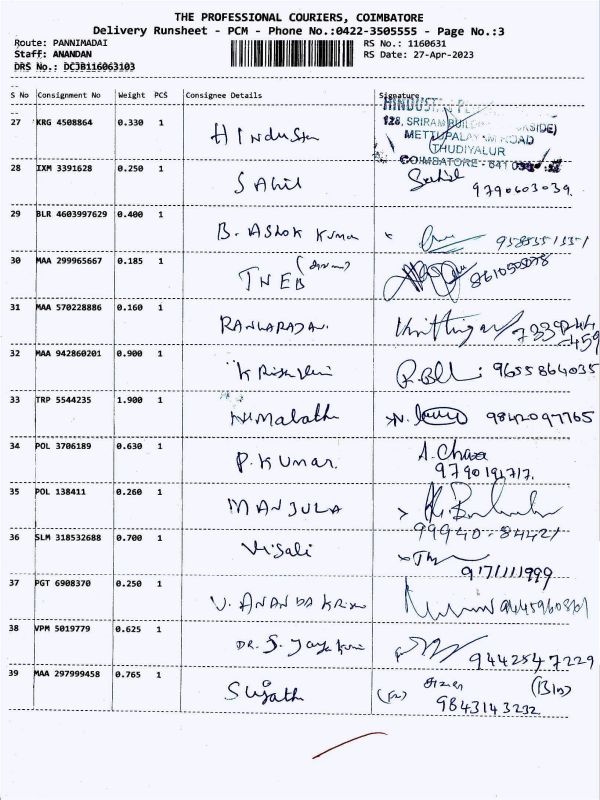 THE PROFESSIONAL COURIERS, COIMBATORE
Delivery Runsheet - PCM - Phone No.:0422-3505555 - Page No.:3
Route: PANNIMADAI RS No.: 1160631
Staff: ANANDAN RS Date: 27-Apr-2023
DRS No.: DCJB116063103
S No Consignment No Weight PCS Consignee Details Signature
HINDUSTAN
128, SRIRAM BUILD KSIDE)
27 KRG 4508864 0.330 1 HINdustan METTUPALAYAM ROAD
THUDIYALUR
COIMBATORE - 641 034
28 IXM 3391628 0.250 1 SAHIL Sahil
9790603039.
29 BLR 4603997629 0.400 1 B. ASHOK Kumar
30 MAA 299965667 0.185 1 TNEB
31 MAA 570228886 0.160 1
32 MAA 942860201 0.900 1 9655864035
33 TRP 5544235 1.900 1 9842097765
34 POL 3706189 0.630 1 P. KUMAR.
9790191717.
35 POL 138411 0.260 1 MANJULA
99940-84421
36 SLM 318532688 0.700 1 Visali
9171111999
37 PGT 6908370 0.250 1 V. ANANDA KRISH
38 VPM 5019779 0.625 1 DR. S. 9442547229
39 MAA 297999458 0.765 1 Sujath
9843143232